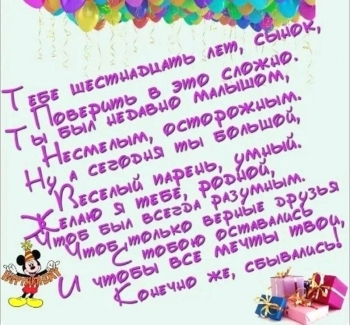 Тебе шестнадцать лет, сынок,
Поверить в это сложно.
Ты был недавно малышом,
Несмелым, осторожным.
Ну а сегодня ты большой,
Веселый парень, умный.
Желаю я тебе, родной,
Чтоб был всегда разумным.
Чтоб столько верные друзья
С тобою оставались
И чтобы все мечты твои,
Конечно же, сбывались!